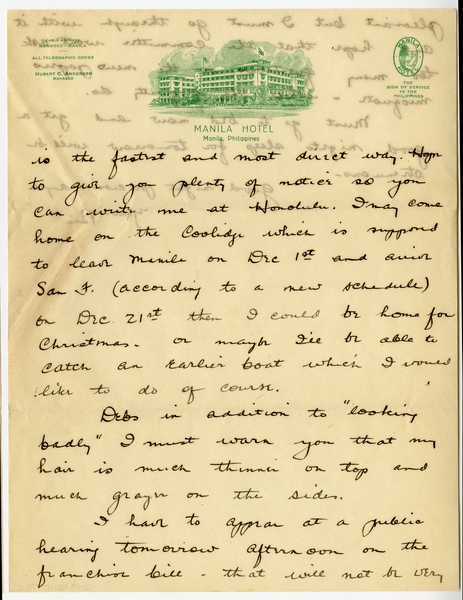 CABLE ADDRESS
MANHOCO - MANILA
ALL TELEGRAPHIC CODES
HUBERT C. ANDERSON
MANAGER
MANILA
HOTEL
THE
SIGN OF SERVICE
IN THE
PHILIPPINES
MANILA HOTEL
Manila, Philippines
is the fastest and most direct way. Hope
to give you plenty of notice so you
can write me at Honolulu. I may come
home on the Coolidge which is supposed
to leave Manila on Dec 1st and arrive
San F. (according to a new schedule)
on Dec. 21st then I could be home for
Christmas. or maybe I'll be able to
catch an earlier boat which I would
like to do of course.
Debs in addition to "looking
badly" I must warn you that my
hair is much thinner on top and
much grayer on the sides.
I have to appear at a public
hearing tomorrow afternoon on the
franchise bill - that will not be very